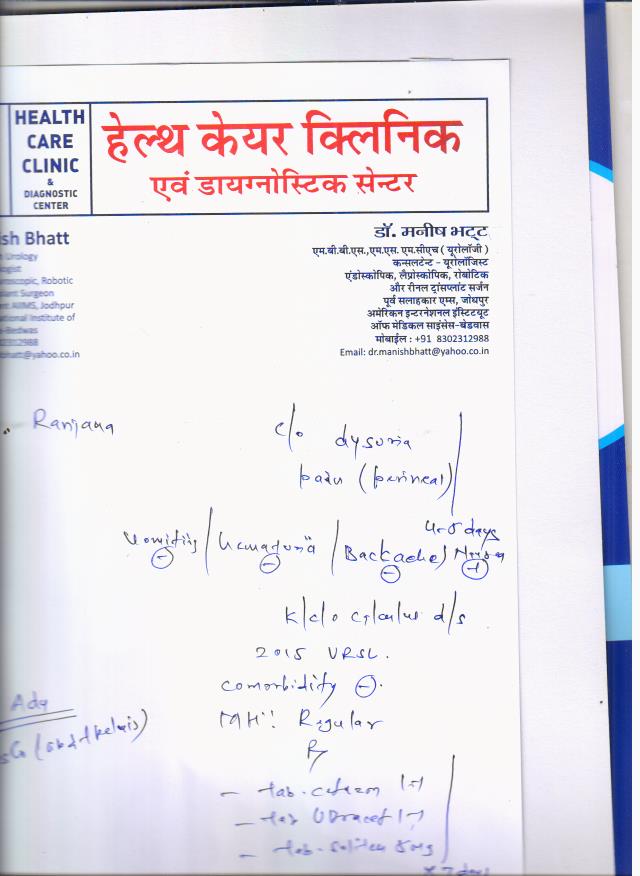 HEALTH
CARE
CLINIC
&
DIAGNOSTIC
CENTER
हेल्थ केयर क्लिनिक
एवं डायग्नोस्टिक सेन्टर
ish Bhatt
Urology
ogist
roscopic, Robotic
plant Surgeon
nt AIIMS, Jodhpur
ational Institute of
-Bedwas
02312988
bhatt@yahoo.co.in
डॉ. मनीष भट्ट
एम.बी.बी.एस.,एम.एस. एम.सीएच ( यूरोलॉजी )
कन्सलटेन्ट - यूरोलॉजिस्ट
एंडोस्कोपिक, लैप्रोस्कोपिक, रोबोटिक
और रीनल ट्रांसप्लांट सर्जन
पूर्व सलाहकार एम्स, जोधपुर
अमेरिकन इन्टरनेशनल इंस्टिटयूट
ऑफ मेडिकल साइंसेस-बेडवास
मोबाईल : +91 8302312988
Email: dr.manishbhatt@yahoo.co.in
Ranjana
c/o dysuria
pain (perineal)
4-5 days
Vomiting / Hematuria / Backache /
K/c/o calculus d/s
2015 URSL.
Comorbidity ⊖.
MH: Regular
Adv
Rx
- tab.
- tab
- tab.
x 7 days